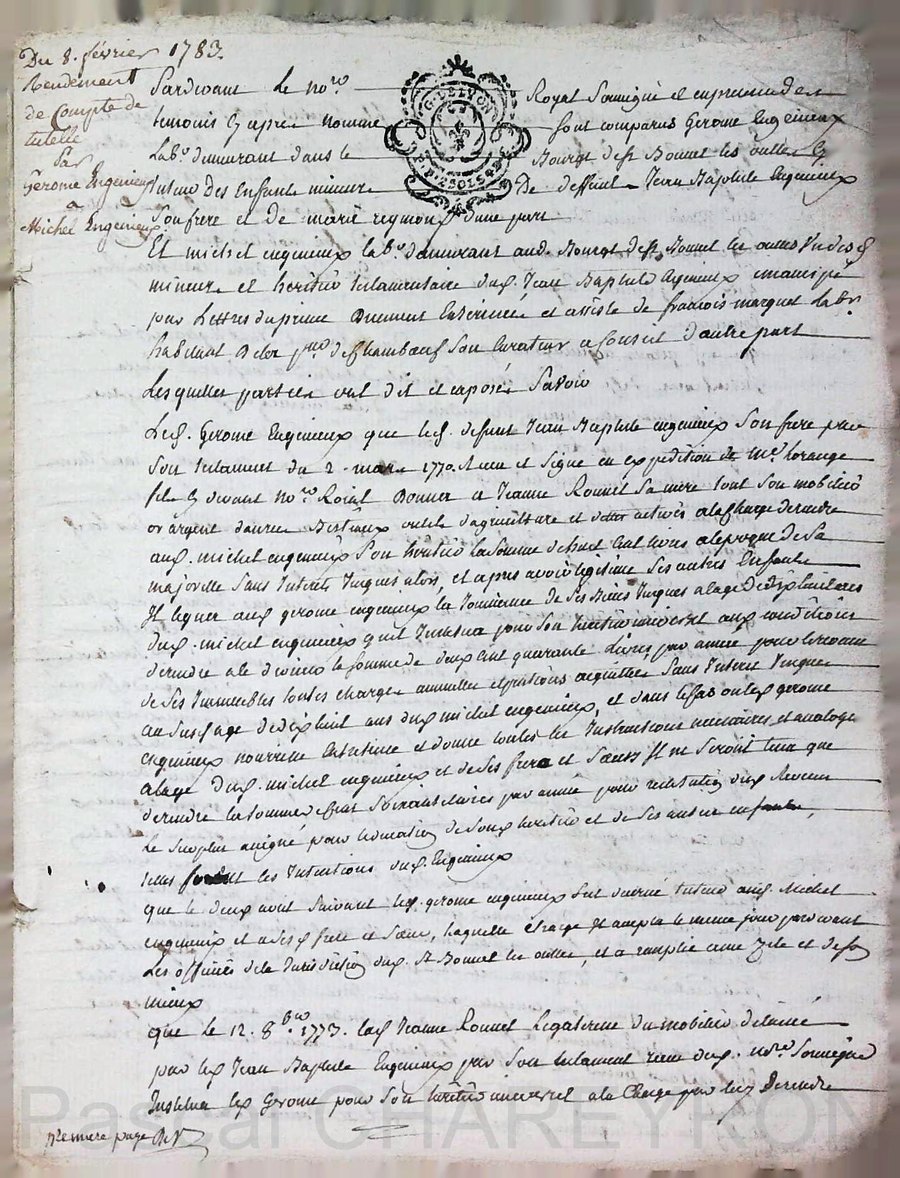 Du 8. février 1783.
Rendement
de Compte de
tutelle
par
Gerome Ingenieux
a
Michel Ingenieux
Pardevant le no.re Royal Soussigné et en presence des
temoins cy apres nommé sont comparus Gerome Engenieux
Lab.r demeurant dans le Bourg de St Bonnet les oulles
tuteur des Enfants mineurs De deffunt Jean Baptiste Engenieux
Son frere et de marie reymond d'une part
G. DE LYON
Et michel engenieux lab.r demeurant aud. Bourg de St Bonnet les oulles
mineur et heritier testamentaire dud. Jean Baptiste Engenieux emancipé
par Lettres du prince Duement Enterinées et assisté de francois marquet lab.r
habitant de Chambœuf Son Curateur a Conseil d'autre part
Lesquelles parties ont dit et exposé Savoir
Led. Gerome Engenieux que led. defunt Jean Baptiste engenieux Son frere par
Son testament du 2. mars 1770. Recu et Signé en expedition de me. horange
no.re Roial Donna a Jeanne Rounel Sa mere tout Son mobilier
or argent danrées Bestiaux outils d'agriculture et dettes actives a la Charge de rendre
aud. michel engenieux Son heritier la Somme de huit Cent livres a l'epoque de Sa
majorité Sans Interets Jusques alors, et apres avoir legitimé Ses autres Enfants
Il legua aud. gerome engenieux la Jouissance de Ses Biens Jusques a l'age de dix huit ans
dud. michel engenieux qu'il Institua pour Son heritier universel aux conditions
de rendre a le dernier la Somme de deux Cent quarante livres par année pour les revenus
de Ses Immeubles toutes charges annuelles acquittées Sans Interet Jusques
au Susd. age de dix huit ans dud. michel engenieux, et dans le Cas ou led. gerome
engenieux nourriroit Entretiendroit et donneroit toutes les Instructions necessaires et analogue
a l'age dud. michel engenieux et de Ses freres et Sœurs Il ne Seroit tenu que
de rendre la Somme de Cent Soixante livres par année pour restitution dud. Revenu
Le Surplus assigné pour l'education de Sond. heritier et de Ses autres enfants,
telles furent les Intentions dud. Engenieux
que le deux aout Suivant led. gerome engenieux fut decerné tuteur aud. Michel
engenieux et a Sesd. freres et Sœurs, laquelle Charge Il accepta le meme jour pardevant
Les officiers de la Jurisdiction dud. St Bonnet les oulles, et a remplie avec Zele et de Son
mieux
que le 12. 8bre 1773. lad. Jeanne Rounel Legataire du mobilier delaissé
par led. Jean Baptiste Engenieux par Son testament recu dud. no.re Soussigné
Institua led. Gerome pour Son heritier universel a la Charge par lui de rendre
premiere page
Pascal CHAREYRON